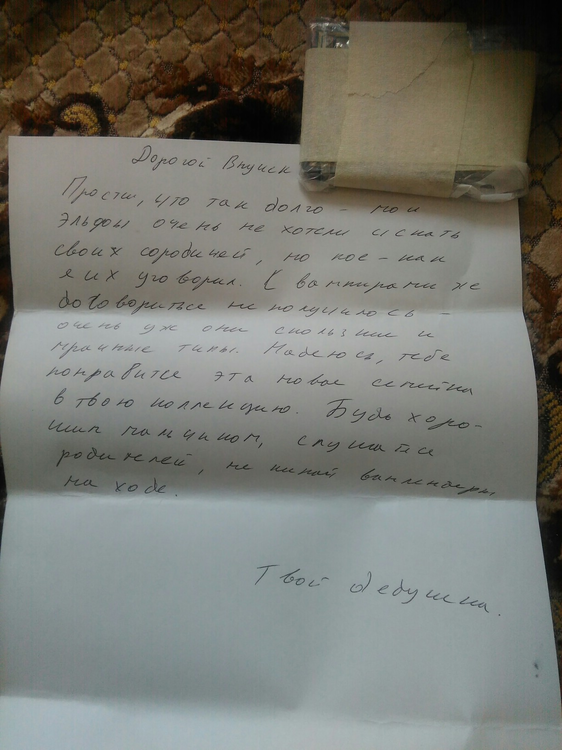 Дорогой Внучек
Прости, что так долго – мои
эльфы очень не хотели искать
своих сородичей, но кое-как
я их уговорил. С вампирами же
договориться не получилось –
очень уж они скользкие и
мрачные типы. Надеюсь, тебе
понравится эта новая семейка
в твою коллекцию. Будь хоро-
шим мальчиком, слушайся
родителей, не кидай
на ходе.
Твой дедушка.